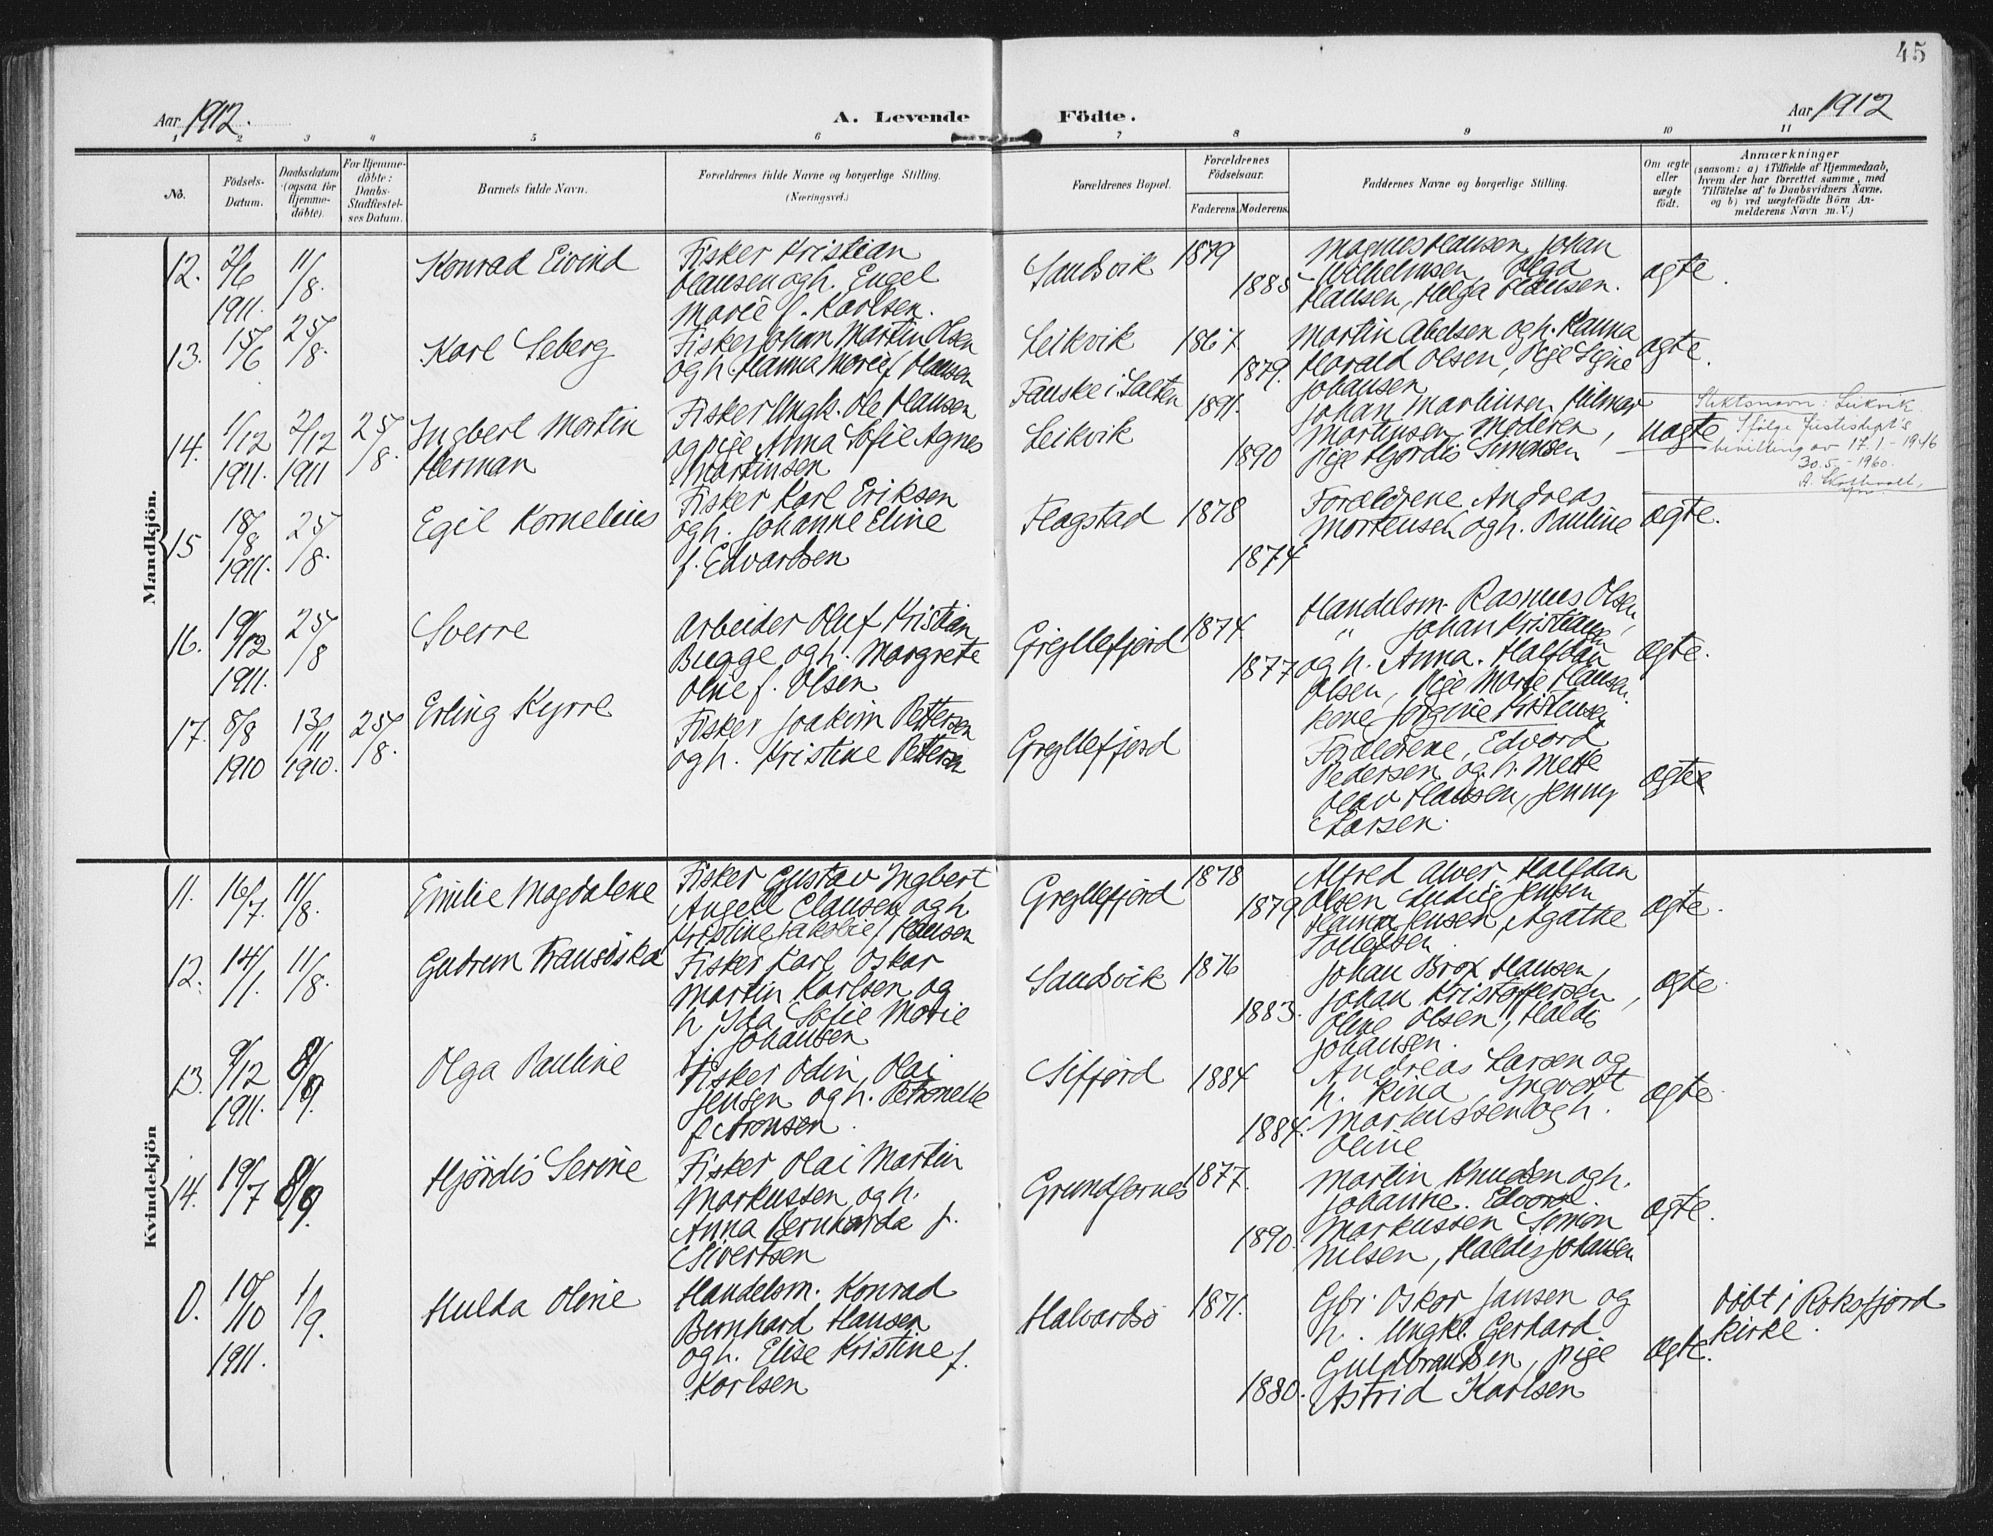 45
Aar 1912.
A. Levende Födte.
Aar 1912
1 2 3 4 5 6 7 8 9 10 11
No.
Födsels-
Datum.
Daabsdatum
(ogsaa for
Hjemme-
döbte).
For Hjemme-
döbte:
Daabs-
Stadfæstel-
ses Datum.
Barnets fulde Navn.
Forældrenes fulde Navne og borgerlige Stilling.
(Næringsvei.)
Forældrenes Bopæl.
Forældrenes
Födselsaar.
Faderens. Moderens.
Faddernes Navne og borgerlige Stilling.
Om ægte
eller
uægte
födt.
Anmærkninger
(saasom: a) i Tilfælde af Hjemmedaab,
hvem der har forrettet samme, med
Tilföielse af to Daabsvidners Navne.
og b) ved uægtefödte Börn An-
melderens Navn m. V.)
Mandkjön.
12.
2/6
1911.
11/8.
Konrad Eivind
Fisker Kristian
Hansen og h. Engel
Marie f. Karlsen.
Sandsvik
1879
1885
Magnus Hansen, Johan
Wilhelmsen Olga
Hansen, Helga Hansen.
ægte.
13.
15/6
25/8.
Karl Seberg
Fisker Johan Martin Olsen
og h. Hanna Marie f Hansen
Leikvik
1867.
1879.
Martin Abelsen og h. Hanna
Harald Olsen, Pige Signe
Johansen
ægte.
14.
1/12
1911.
2/12
1911
25/8.
Ingbert Martin
Herman
Fisker Ungk. Ole Hansen
og pige Anna Sofie Agnes
Martinsen
Fauske i Salten
Leikvik
1891.
1890
Johan Martinsen Hilmar
Martinsen Moderen,
Pige Hjørdis Simonsen
uægte
Slektsnavn: Leikvik
Ifølge Justisdept's
bevilling av 17.1.-1946
30.5.-1960.
15
18/8
1911.
25/8.
Egil Kornelius
Fisker Karl Eriksen
og h. Johanne Eline
f. Edvardsen
Flagstad
1878
1874
Forældrene Andreas
Mortensen og h. Pauline
ægte.
16.
19/12
1911.
25/8
Sverre
Arbeider Oluf Kristian
Bugge og h. Margrete
Oline f. Olsen
Gryllefjord
1874.
1877
Handelsm. Rasmus Olsen,
" Johan Kristiansen
og h. Anna. Halfdan
Olsen, Pige Marie Hansen.
kone Jørgine Kristensen
ægte.
17.
8/8
1910
13/11
1910.
25/8.
Erling Kyrre
Fisker Joakim Pettersen
og h. Kristine Pettersen
Gryllefjord
Forældrene, Edvard
Pedersen og h. Mette
Olav Hansen, Jenny
Larsen.
ægte
Kvindekjön
11.
16/7.
11/8.
Emilie Magdalene
Fisker Gustav Ingbert
Angell Clausen og h
Kristine Jakobie f Hansen
Gryllefjord
1878
1879
Alfred Alver, Halfdan
Olsen Ludvig Jensen
Hanna Jensen, Agathe
Tollefsen
ægte.
12.
14/1.
11/8.
Gudrun Fransiska
Fisker Karl Oskar
Martin Karlsen og
h. Ida Sofie Marie
f. Johansen
Sandsvik
1876
1883.
Johan Brox Hansen,
Johan Kristoffersen,
Oline Olsen, Haldis
Johansen.
ægte.
13.
9/12
1911.
8/9.
Olga Pauline
Fisker Odin Olai
Jensen og h. Petronelle
f Aronsen.
Sifjord
1884
1884.
Andreas Larsen og
h. Rina Ingvert
Markussen og h.
Oline
ægte
14.
19/7
8/9.
Hjørdis Serine
Fisker Olai Martin
Markussen og h.
Anna Bernharda f.
Sivertsen
Grundfarnes
1877.
1890.
Martin Knudsen og h.
Johanne. Edvard
Markussen Simon
Nilsen, Haldis Johansen
ægte.
0.
10/10
1911.
1/9.
Hulda Oline
Handelsm. Konrad
Bernhard Hansen
og h. Elise Kristine f.
Karlsen
Halvardsö
1871.
1880.
Gbr. Oskar Jansen og
h.. Ungk. Gerhard
Guldbrandsen, pige
Astrid Karlsen
ægte.
Døbt i Roksfjord
Kirke.